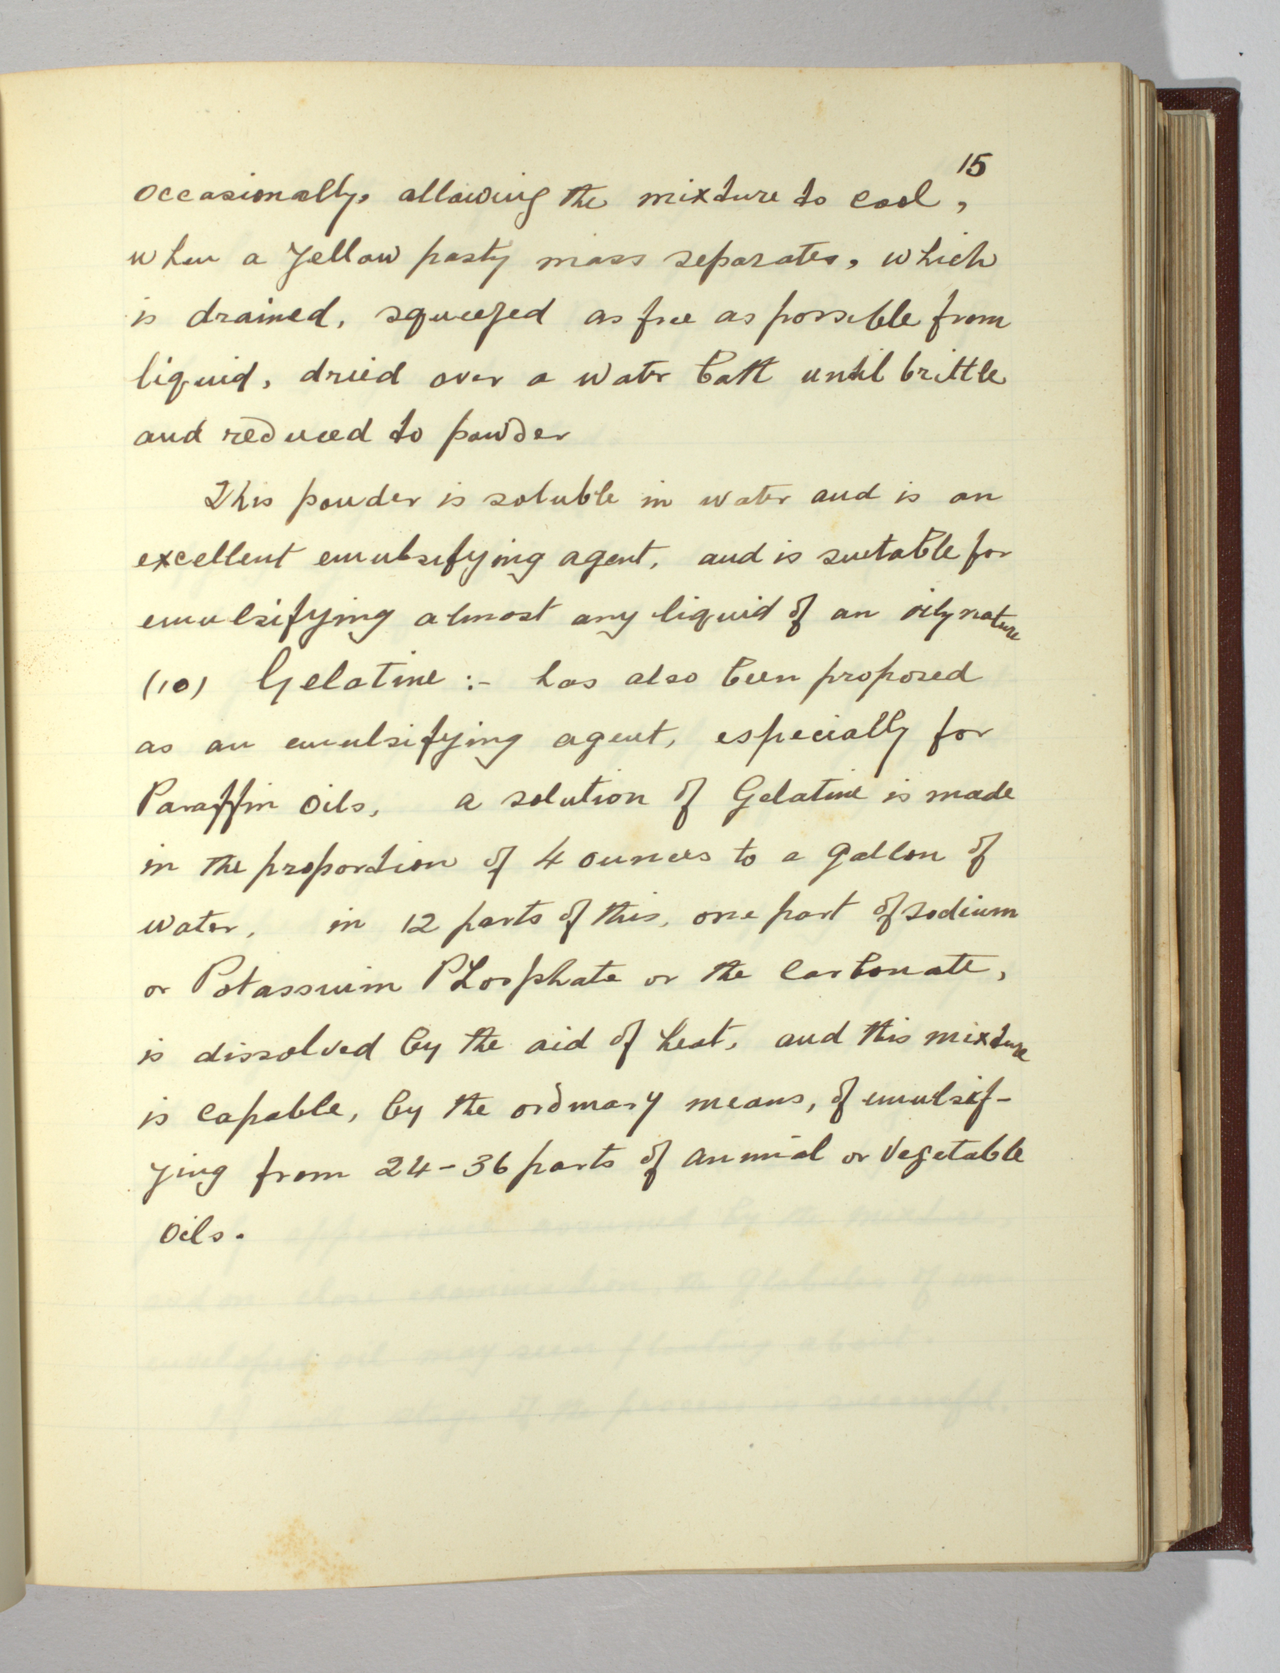 15
occasionally, allowing the mixture to cool,
when a yellow pasty mass separates, which
is drained, squeezed as free as possible from
liquid, dried over a water bath until brittle
and reduced to powder
This powder is soluble in water and is an
excellent emulsifying agent, and is suitable for
emulsifying almost any liquid of an oily nature
(10) Gelatine :- has also been proposed
as an emulsifying agent, especially for
Paraffin oils, a solution of Gelatine is made
in the proportion of 4 ounces to a gallon of
water, in 12 parts of this, one part of sodium
or Potassium Phosphate or the carbonate,
is dissolved by the aid of heat, and this mixture
is capable, by the ordinary means, of emulsif-
ying from 24-36 parts of animal or vegetable
oils.